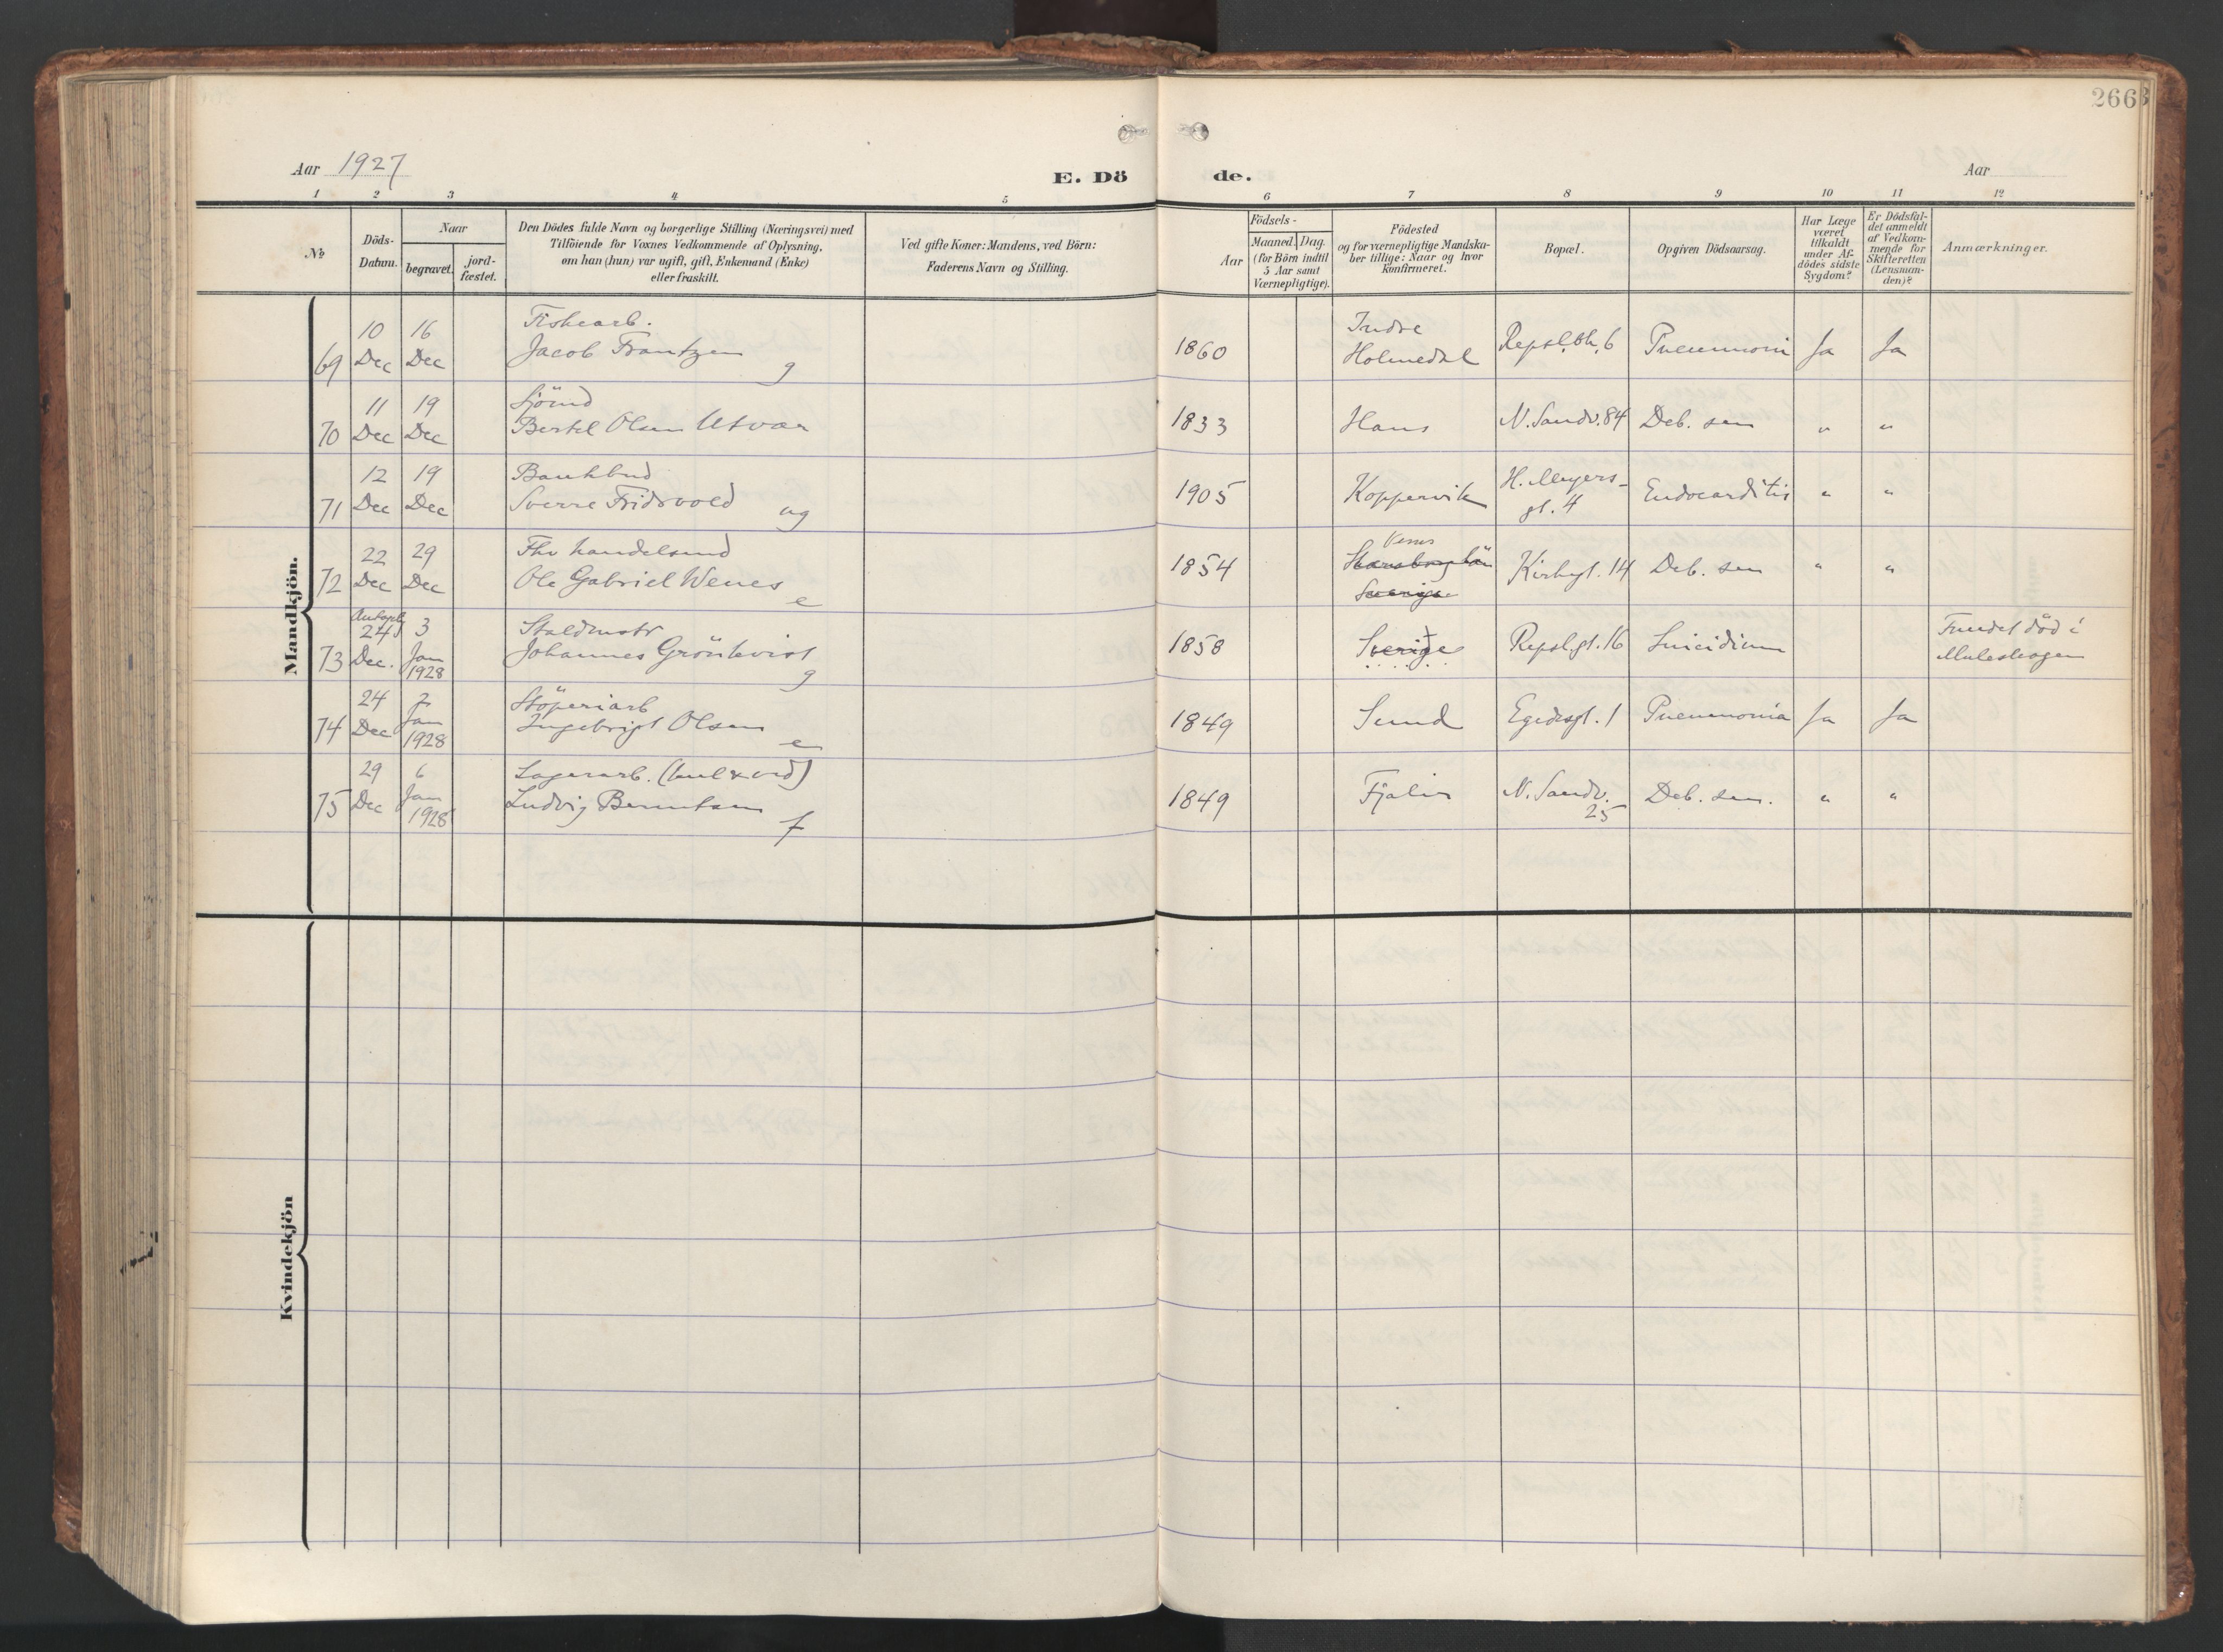 266
Aar 1927
E. Dö
de.
Aar
1 2 3 4 5 6 7 8 9 10 11 12
No
Döds-
Datum.
Naar
begravet.
jord-
fæstet.
Den Dödes fulde Navn og borgerlige Stilling (Næringsvei) med
Tilföiende for Voxnes Vedkommende af Oplysning,
om han (hun) var ugift, gift, Enkemand (Enke)
eller fraskilt.
Ved gifte Koner: Mandens, ved Börn:
Faderens Navn og Stilling.
Födsels-
Aar
Maaned. Dag.
(for Börn indtil
5 Aar samt
Værnepligtige).
Födested
og for værnepligtige Mandska-
ber tillige: Naar og hvor
Konfirmeret.
Bopæl.
Opgiven Dödsaarsag.
Har Læge
været
tilkaldt
under Af-
dödes sidste
Sygdom?
Er Dödsfal-
det anmeldt
af Vedkom-
mende for
Skifteretten
(Lensman-
den)?
Anmærkninger.
Mandkjön.
69
10
Dec
16
Dec
Fiskearb.
Jacob Frantzen
g
1860
Indre
Holmedal
Repsl.bk. 6
Pneumoni
Ja
Ja
70
11
Dec
19
Dec
Sjömd
Bertel Olsen Utvær
1833
Haus
N. Sandv. 84
Deb. sen
"
"
71
12
Dec
19
Dec
Bankbud
Sverre Fridsvold
ug
1905
Koppervik
H. Meyers-
gt. 4
Endocarditis
"
"
72
22
Dec
29
Dec
Fhv handelsmd
Ole Gabriel Wenes
e
1854
Venes
Sverige
Kirkegt. 14
Deb. sen
"
"
73
24
Dec.
3
Jan
1928
Staldmstr
Johannes Grönkvist
g
1858
Sverige
Repsl.gt. 16
Suicidium
Fundet död i
Muleskogen
74
24
Dec
2
Jan
1928
Stöperiarb
Ingebrigt Olsen
e
1849
Sund
Egedesgt. 1
Pneumonia
Ja
Ja
75
29
Dec
6
Jan
1928
Lagerarb. (kul & ved)
Ludvig Berntsen
f
1849
Fjaler
N. Sandv.
25
Deb. sen.
"
"
Kvindekjön